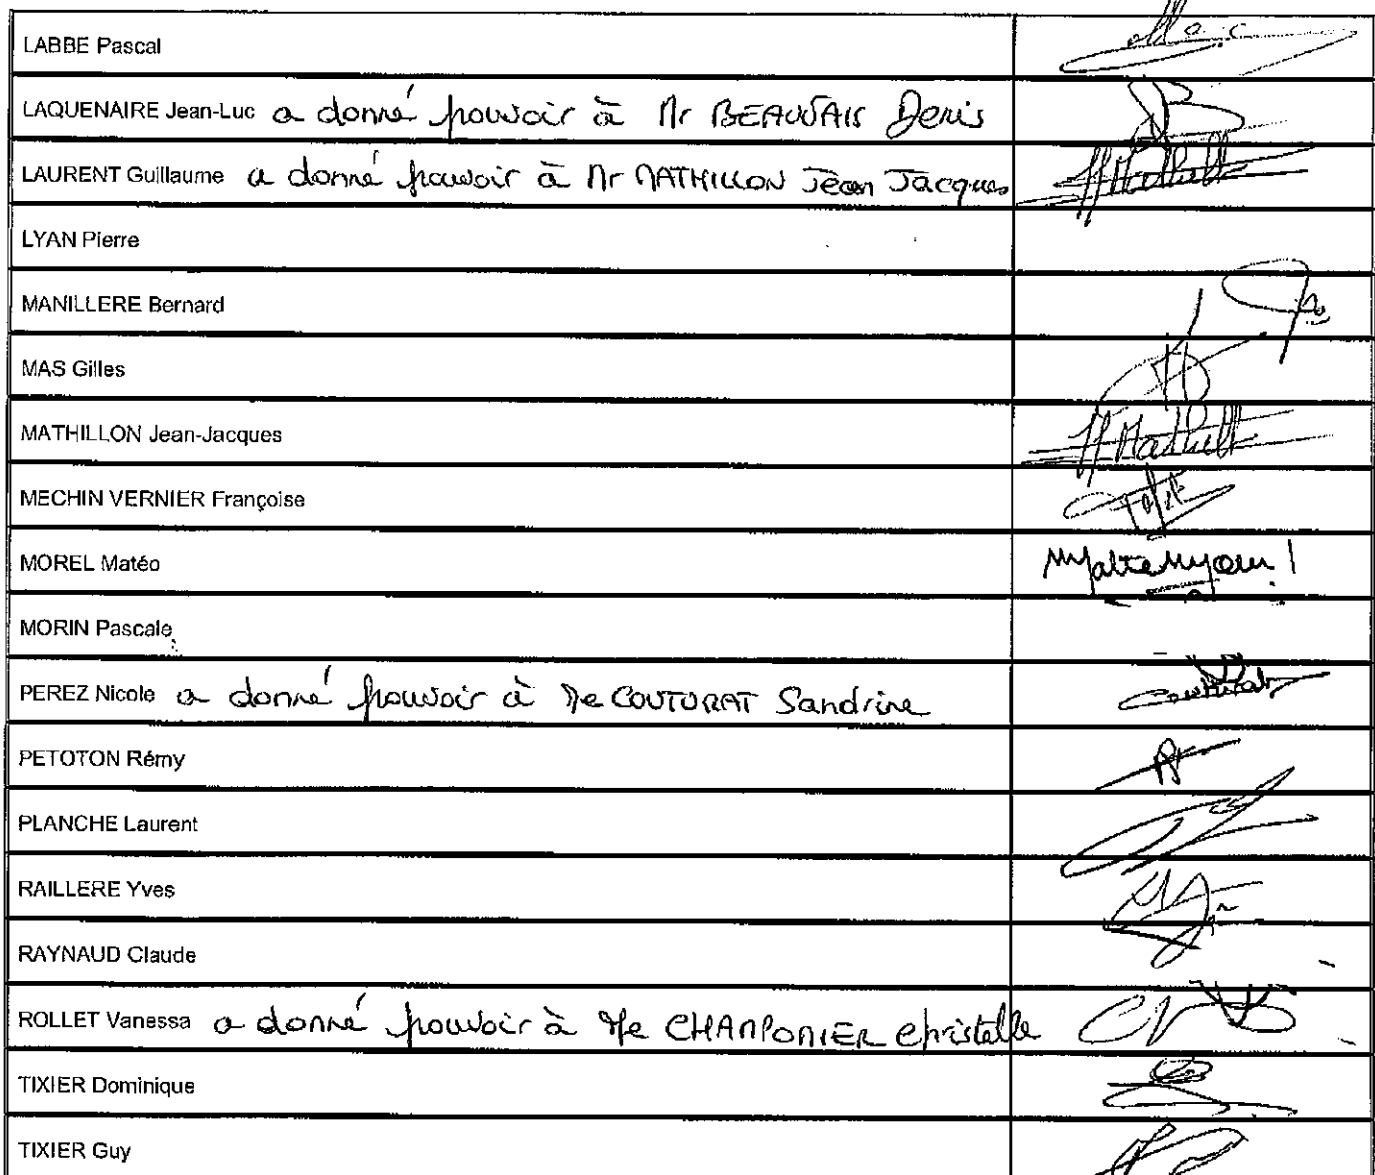 LABBE Pascal
LAQUENAIRE Jean-Luc a donné pouvoir à Mr BEAUVAIS Denis
LAURENT Guillaume a donné pouvoir à Mr MATHILLON Jean Jacques
LYAN Pierre
MANILLERE Bernard
MAS Gilles
MATHILLON Jean-Jacques
MECHIN VERNIER Françoise
MOREL Matéo
MORIN Pascale
PEREZ Nicole a donné pouvoir à Me COUTURAT Sandrine
PETOTON Rémy
PLANCHE Laurent
RAILLERE Yves
RAYNAUD Claude
ROLLET Vanessa a donné pouvoir à Me CHAMPOMIER Christelle
TIXIER Dominique
TIXIER Guy